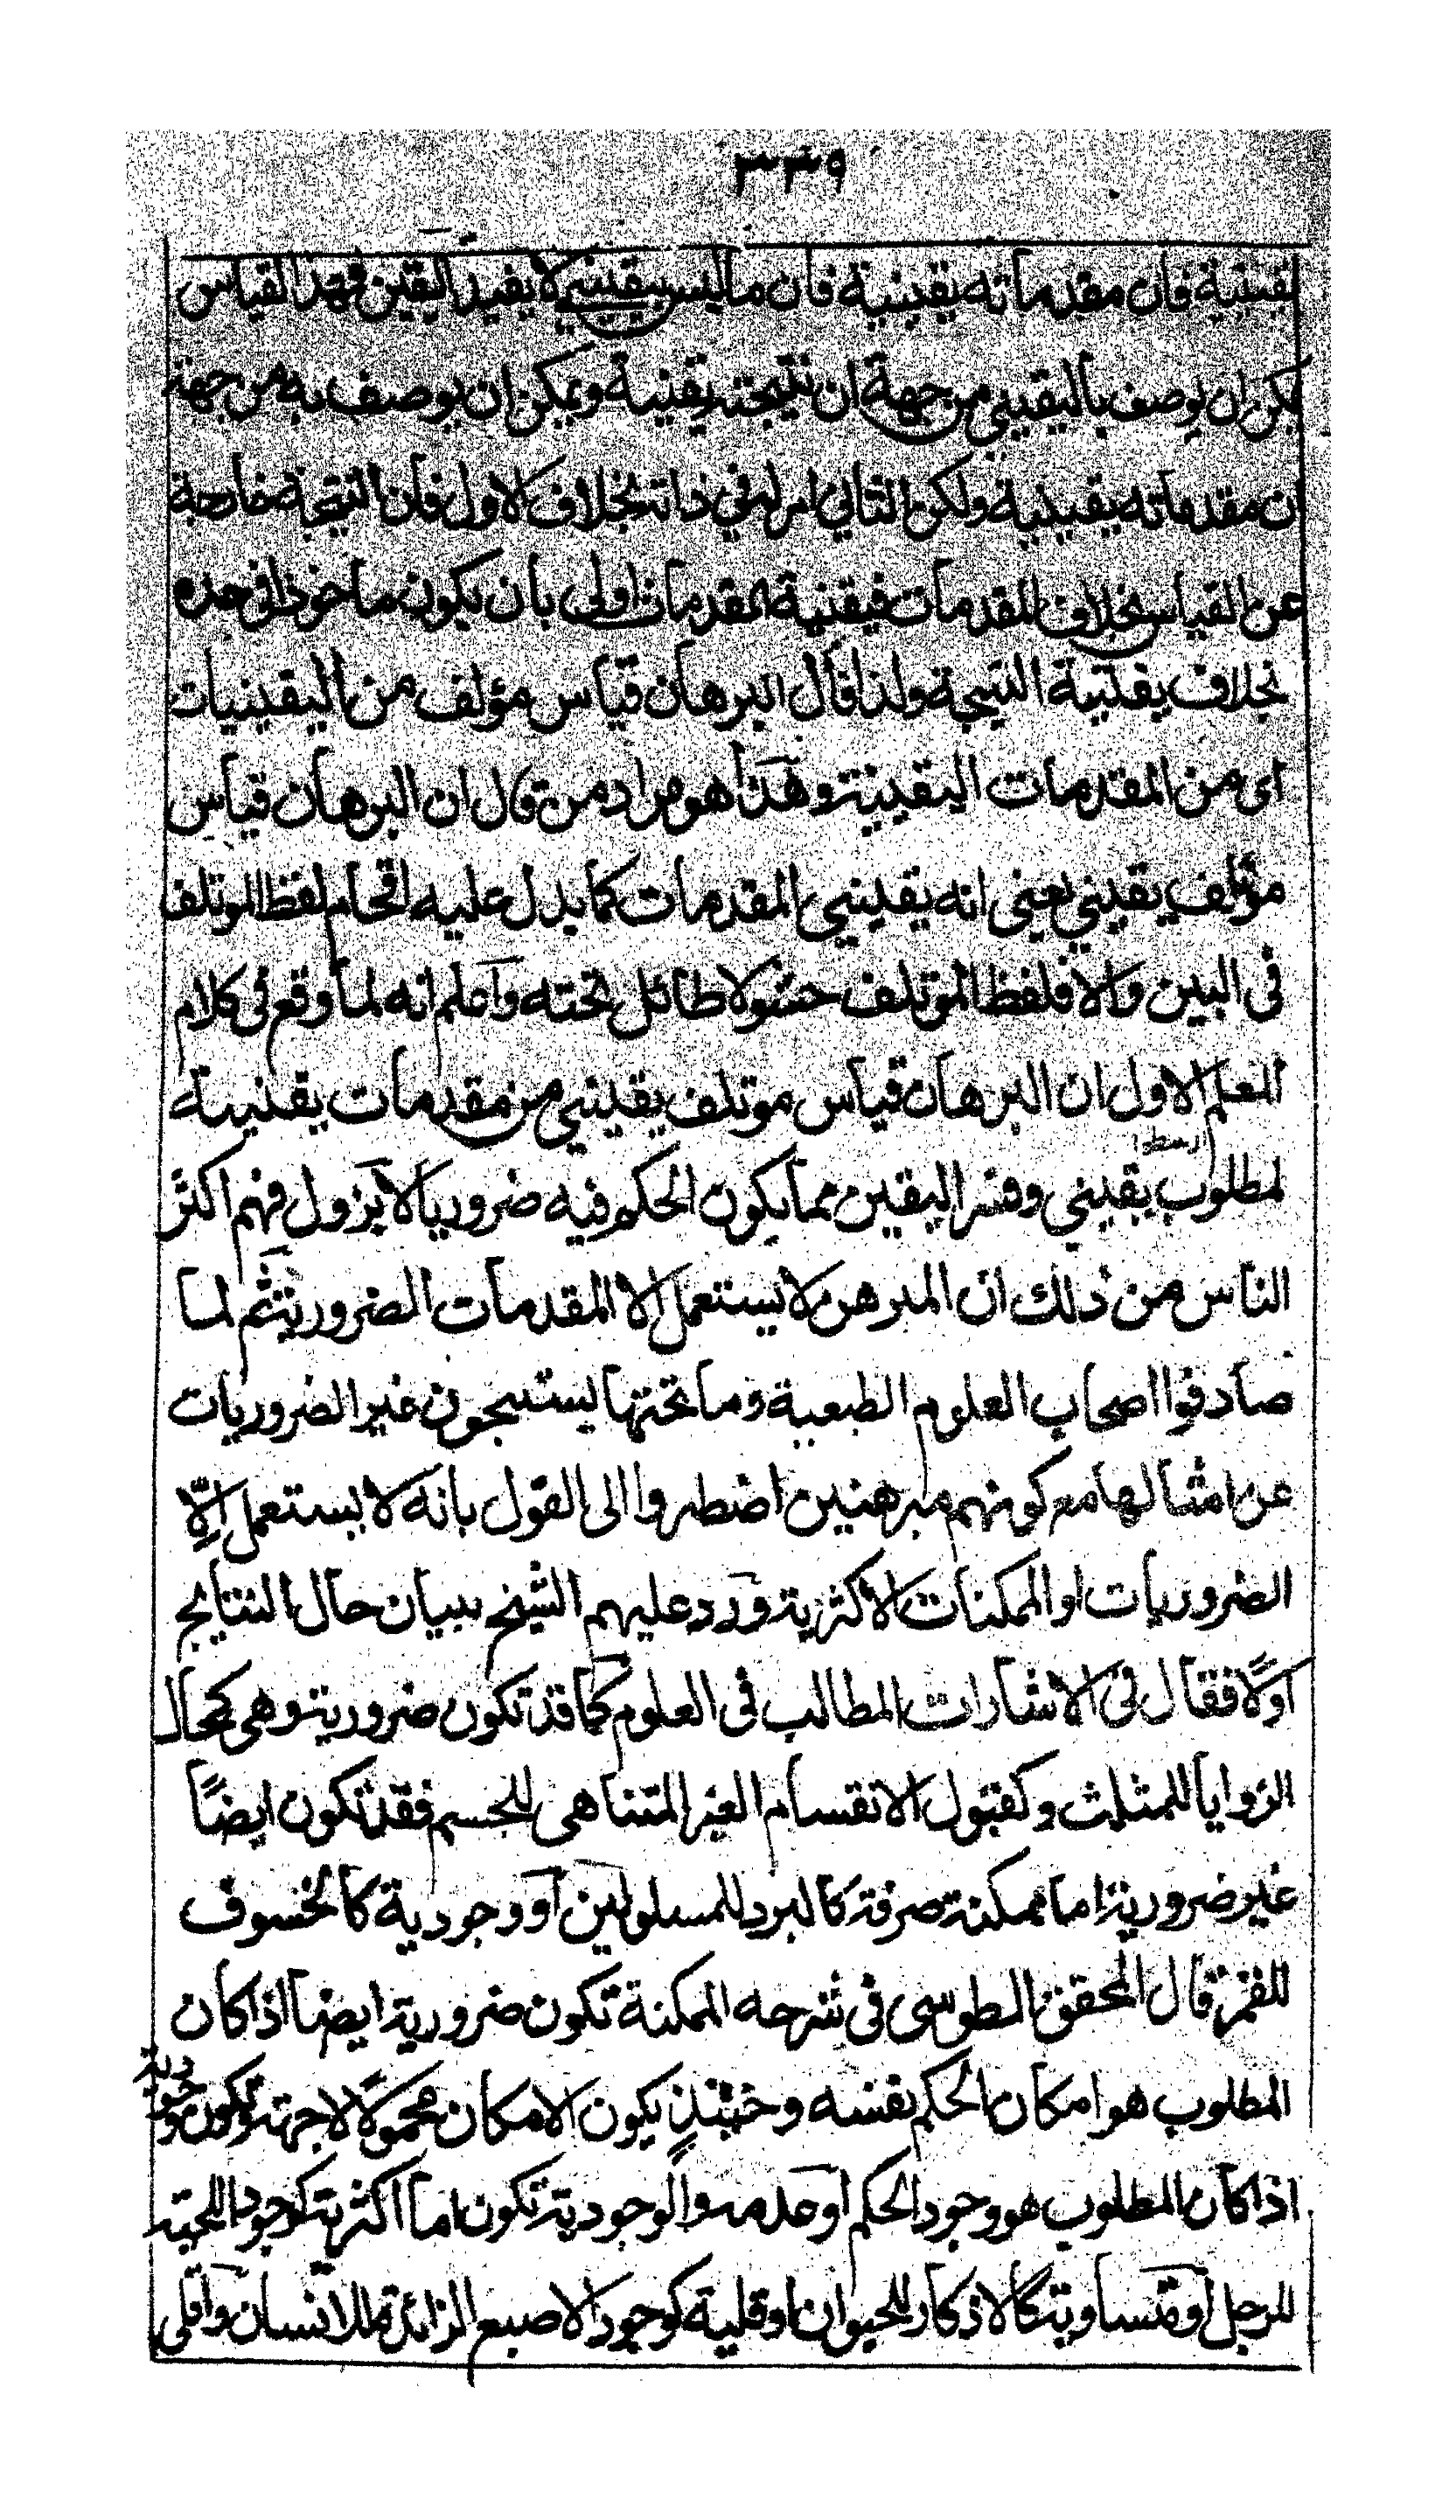 ٣٣٩
يقينية فان مقدماته يقينية فان ما ليس بيقيني لا يفيد اليقين فهذا القياس
يمكن ان يوصف باليقيني من جهة ان نتيجته يقينية ويمكن ان يوصف به من جهة
ان مقدماته يقينية ولكن الثاني امر له في ذاته بخلاف الاول فان النتيجة خارجة
عن القياس بخلاف المقدمات فيقينية المقدمات اولى بان يكون ماخوذا في حده
بخلاف يقينية النتيجة ولذا قال البرهان قياس مؤلف من اليقينيات
اى من المقدمات اليقينية وهذا هو مراد من قال ان البرهان قياس
مؤلف يقيني يعنى انه يقيني المقدمات كما يدل عليه اقحام لفظ الموتلف
فى البين والا فلفظ الموتلف حشو لا طائل تحته واعلم انه لما وقع فى كلام
المعلم الاول ان البرهان قياس موتلف يقيني من مقدمات يقينية
لمطلوب يقيني وفسر اليقين مما يكون الحكم فيه ضروريا لا يزول فهم اكثر
الناس من ذلك ان المبرهن لا يستعمل الا المقدمات الضرورية ثم لما
صادفوا اصحاب العلوم الطبعية وما تحتها يستنتجون غير الضروريات
عن امثالها مع كونهم مبرهنين اضطروا الى القول بانه لا يستعمل الّا
الضروريات او الممكنات الاكثرية ورد عليهم الشيخ ببيان حال النتايج
اولًا فقال فى الاشارات المطالب فى العلوم كما قد تكون ضرورية وهى كحال
الزوايا للمثلث وكقبول الانقسام الغير المتناهى للجسم فقد تكون ايضاً
غير ضرورية اما ممكنة صرفة كالبرد للمسلولين او وجودية كالخسوف
للقمر قال المحقق الطوسى فى شرحه الممكنة تكون ضرورية ايضا اذا كان
المطلوب هو امكان الحكم بنفسه وحينئذٍ يكون الامكان محمولًا لا جهة وتكون وجودية
اذا كان المطلوب هو وجود الحكم او عدمه والوجودية تكون اما اكثرية كوجود اللحية
للرجل او متساوية كالاذكار للحيوان او قلية كوجود الاصبع الزائدة للانسان واقلى